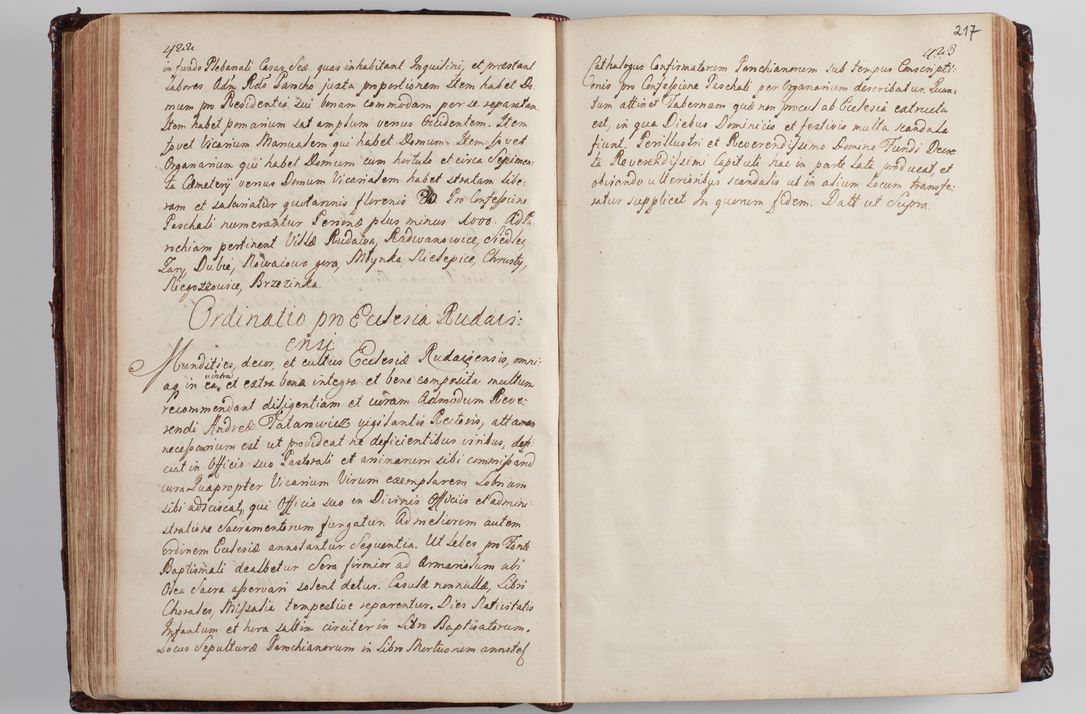 422
in fundo Plebanali Casas Sex quas inhabitant Inquilini, et præstant
Labores Adm. Rdo Parocho juxta proportionem Item habet Do-
mum pro Residentia Sui bonam commodam per se separatam
Item habet pomarium sat amplum versus Occidentem. Item
fovet Vicarium Manualem qui habet Domum. Item fovet
Organarium qui habet Domum cum hortulo et circa Sepimen-
ta Cæmeterij versus Domum Vicarialem habet stratam libe-
ram et salariatur quotannis florenis 30 Pro Confessione
Paschali numerantur Personæ plus minus 1000. Ad Pa-
rochiam pertinent Villæ Rudawa, Radwanowice, Siedlec,
Zary, Dubie, Nowaiowa gora, Młynka Nielepice, Chrusty,
Niegoszowice, Brzezinka.
Ordinatio pro Ecclesia Rudavi-
ensi
Mundities, decor, et cultus Ecclesiæ Rudaviensis, omni-
aq in ea intra et extra bona integra et bene composita multum
recommendant diligentiam et curam Admodum Reve-
rendi Andreæ Patanowicz vigilantis Rectoris, attamen
necessarium est ut provideat ne deficientibus viribus, defi-
ciat in Officio suo Pastorali et animarum sibi commissarum
cura Quapropter Vicarium Virum exemplarem bonum
sibi adsciscat, qui Officio suo in Divinis Officiis et admini-
stratione Sacramentorum fungatur. Ad meliorem autem
ordinem Ecclesiæ annotantur Sequentia. Ut Lebes pro Fonte
Baptismali dealbetur Sera firmior ad Armariolum ubi
Olea Sacra asservari solent detur. Casulæ nonnullæ, Libri
Chorales, Missalia tempestive reparentur. Dies Nativitatis
Infantum et hora saltim circiter in Libro Baptisatorum.
Locus Sepulturæ Parochianorum in Libro Mortuorum annotet
217
423
Cathalogus Confirmatorum Parochianorum sub tempus Conscripti-
onis pro Confessione Paschali per Organarium describatur. Quan-
tum attinet Tabernam quæ non procul ab Ecclesia extructa
est, in qua Diebus Dominicis et festivis multa scandala
fiunt. Perillustri et Reverendissimo Domino Fundi Decre-
ta Reverendissimi Capituli hac in parte lata producat, et
obviando ulterioribus scandalis ut in alium Locum transfe-
ratur supplicet In quorum fidem. Datt ut Supra.